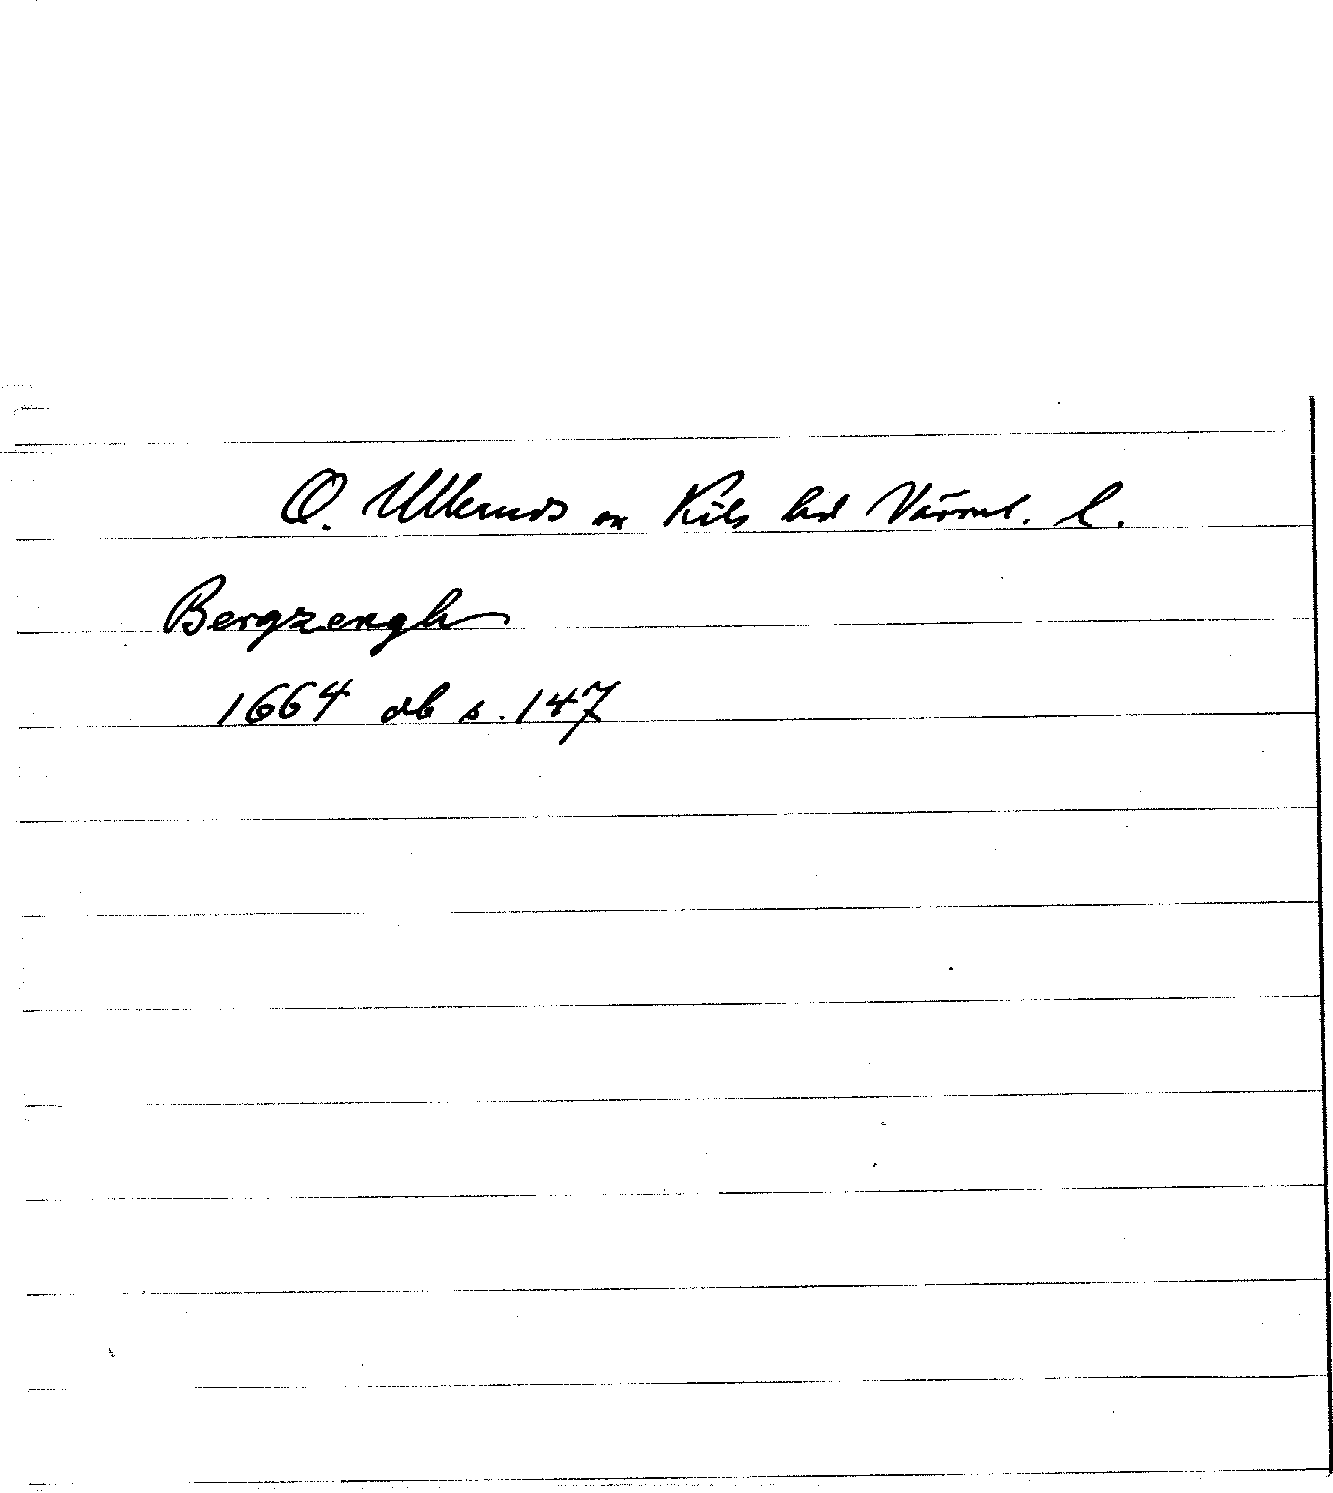 Ö. Ulleruds sn Kils hd Värml. l.
Bergzengh
1664 db s. 147